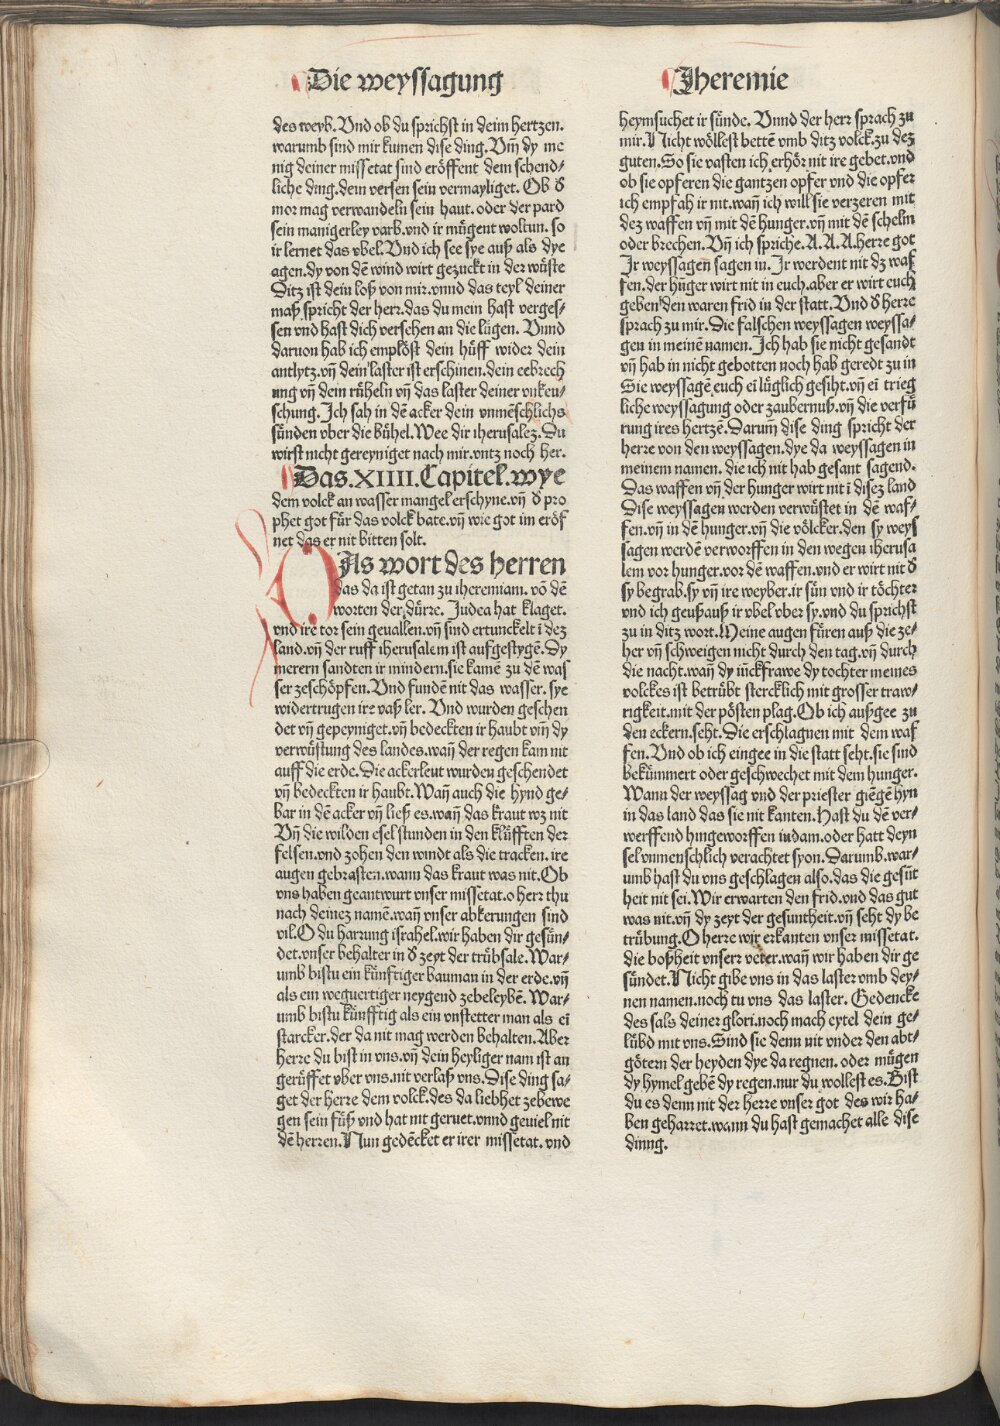 Die weyssagung
Jheremie
des weyb. Vnd ob du sprichst in deim hertzen.
warumb sind mir kumen dise ding. Vm̄ dy me
nig deiner missetat sind eröffent dem schend⸗
liche ding. dein versen sein vermayliget. Ob d̕
mor mag verwandeln sein haut. oder der pard
sein manigerley varb. vnd ir mügent woltun. so
ir lernet das vbel. Vnd ich see sye auß als dye
agen. dy von dē wind wirt gezuckt in der wüste
Ditz ist dein loß von mir. vnnd das teyl deiner
maß spricht der herr. das du mein hast verges⸗
sen vnd hast dich versehen an die lügen. Vnnd
daruon hab ich emplöst dein hüff wider dein
antlytz. vn̄ dein laster ist erschinen. dein eebrech
ung vn̄ dein rüheln vn̄ das laster deiner vnkeu⸗
schung. Ich sah in dē acker dein vnmēschlichs
sünden vber die bühel. Wee dir iherusalez. Du
wirst nicht gereyniget nach mir. vntz noch her.
Das. XIIII. Capitel. wye
dem volck an wasser mangel erschyne. vn̄ d̕ pro
phet got für das volck bate. vn̄ wie got im eröf
net das er nit bitten solt.
DAs wort des herren
das da ist getan zu iheremiam. vō dē
worten der dürre. Judea hat klaget.
vnd ire tor sein geuallen. vn̄ sind ertunckelt ī dez
land. vn̄ der ruff iherusalem ist aufgestygē. Dy
merern sandten ir mindern. sie kamē zu dē was
ser zeschöpfen. Vnd fundē nit das wasser. sye
widertrugen ire vaß ler. Vnd wurden geschen
det vn̄ gepeyniget. vn̄ bedeckten ir haubt vm̄ dy
verwüstung des landes. wan̄ der regen kam nit
auff die erde. Die ackerleut wurden geschendet
vn̄ bedeckten ir haubt. Wan̄ auch die hynd ge⸗
bar in dē acker vn̄ ließ es. wan̄ das kraut wz nit
Vn̄ die wilden esel stunden in den klüfften der
felsen. vnd zohen den windt als die tracken. ire
augen gebrasten. wann das kraut was nit. Ob
vns haben geantwurt vnser missetat. o herr thu
nach deinez namē. wan̄ vnser abkerungen sind
vil. O du harrung israhel. wir haben dir gesün⸗
det. vnser behalter in d̕ zeyt der trübsale. War⸗
umb bistu ein künftiger bauman in der erde. vn̄
als ein weguertiger neygend zebeleybē. War⸗
umb bistu künfftig als ein vnstetter man als eī
starcker. der da nit mag werden behalten. Aber
herre du bist in vns. vn̄ dein heyliger nam ist an
gerüffet vber vns. nit verlaß vns. Dise ding sa⸗
get der herre dem volck. des da liebhet zebewe
gen sein füß vnd hat nit geruet. vnnd geuiel nit
dē herren. Nun gedēcket er irer missetat. vnd
heymsuchet ir sünde. Vnnd der herr sprach zu
mir. Nicht wöllest bettē vmb ditz volck. zu dez
guten. So sie vasten ich erhör nit ire gebet. vnd
ob sie opferen die gantzen opfer vnd die opfer
ich empfah ir nit. wan̄ ich will sie verzeren mit
dez waffen vn̄ mit dē hunger. vn̄ mit dē schelm
oder brechen. Vn̄ ich spriche. A. A. A. herre got
Ir weyssagen sagen in. Ir werdent nit dz waf
fen. der hūger wirt nit in euch. aber er wirt euch
geben den waren frid in der statt. Vnd d̕ herre
sprach zu mir. Die falschen weyssagen weyssa⸗
gen in meinē namen. Ich hab sie nicht gesandt
vn̄ hab in nicht gebotten noch hab geredt zu in
Sie weyssagē euch ei lüglich gesiht. vn̄ eī trieg
liche weyssagung oder zaubernuß. vn̄ die verfü
rung ires hertzē. Darum̄ dise ding spricht der
herre von den weyssagen. dye da weyssagen in
meinem namen. die ich nit hab gesant sagend.
Das waffen vn̄ der hunger wirt nit ī disez land
Dise weyssagen werden verwüstet in dē waf⸗
fen. vn̄ in dē hunger. vn̄ die völcker. den sy weys
sagen werdē verworffen in den wegen iherusa
lem vor hunger. vor dē waffen. vnd er wirt nit d̕
sy begrab. sy vn̄ ire weyber. ir sün vnd ir töchter
vnd ich geußauß ir vbel vber sy. vnd du sprichst
zu in ditz wort. Meine augen füren auß die ze⸗
her vn̄ schweigen nicht durch den tag. vn̄ durch
die nacht. wan̄ dy iūckfrawe dy tochter meines
volckes ist betrübt stercklich mit grosser traw⸗
rigkeit. mit der pösten plag. Ob ich außgee zu
den eckern. seht. Die erschlagnen mit dem waf
fen. Vnd ob ich eingee in die statt seht. sie sind
bekümmert oder geschwechet mit dem hunger.
Wann der weyssag vnd der priester giēgē hyn
in das land das sie nit kanten. Hast du dē ver⸗
werffend hingeworffen iudam. oder hatt deyn
sel vnmenschlich verachtet syon. Darumb. war⸗
umb hast du vns geschlagen also. das die gesūt
heit nit sei. Wir erwarten den frid. vnd das gut
was nit. vn̄ dy zeyt der gesuntheit. vn̄ seht dy be
trübung. O herre wir erkanten vnser missetat.
die boßheit vnserr veter. wan̄ wir haben dir ge
sündet. Nicht gibe vns in das laster vmb dey⸗
nen namen. noch tu vns das laster. Gedencke
des sals deiner glori. noch mach eytel dein ge⸗
lübd mit vns. Sind sie denn nit vnder den abt⸗
götern der heyden dye da regnen. oder mügen
dy hymel gebē dy regen. nur du wollest es. Bist
du es denn nit der herre vnser got des wir ha⸗
ben geharret. wann du hast gemachet alle dise
dinng.